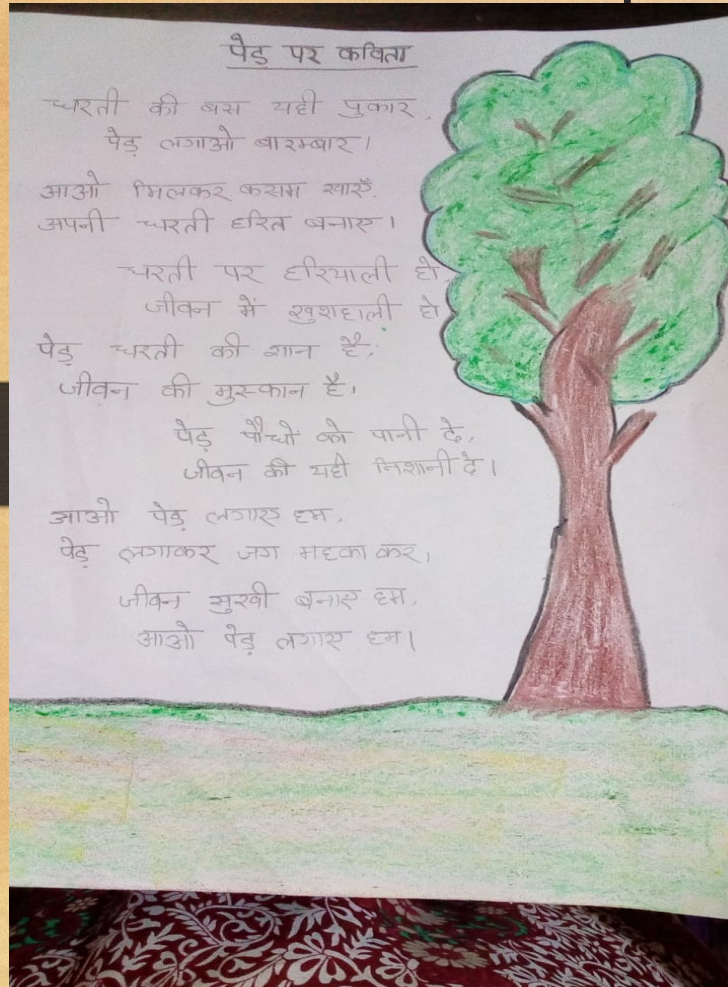 पेड़ पर कविता
धरती की बस यही पुकार,
पेड़ लगाओ बारम्बार।
आओ मिलकर कसम खाएँ,
अपनी धरती हरित बनाए।
धरती पर हरियाली हो,
जीवन में खुशहाली हो
पेड़ धरती की शान है,
जीवन की मुस्कान है।
पेड़ पौधों को पानी दे,
जीवन की यही निशानी दे।
आओ पेड़ लगाए हम,
पेड़ लगाकर जग महका कर,
जीवन सुखी बनाए हम,
आओ पेड़ लगाए हम।